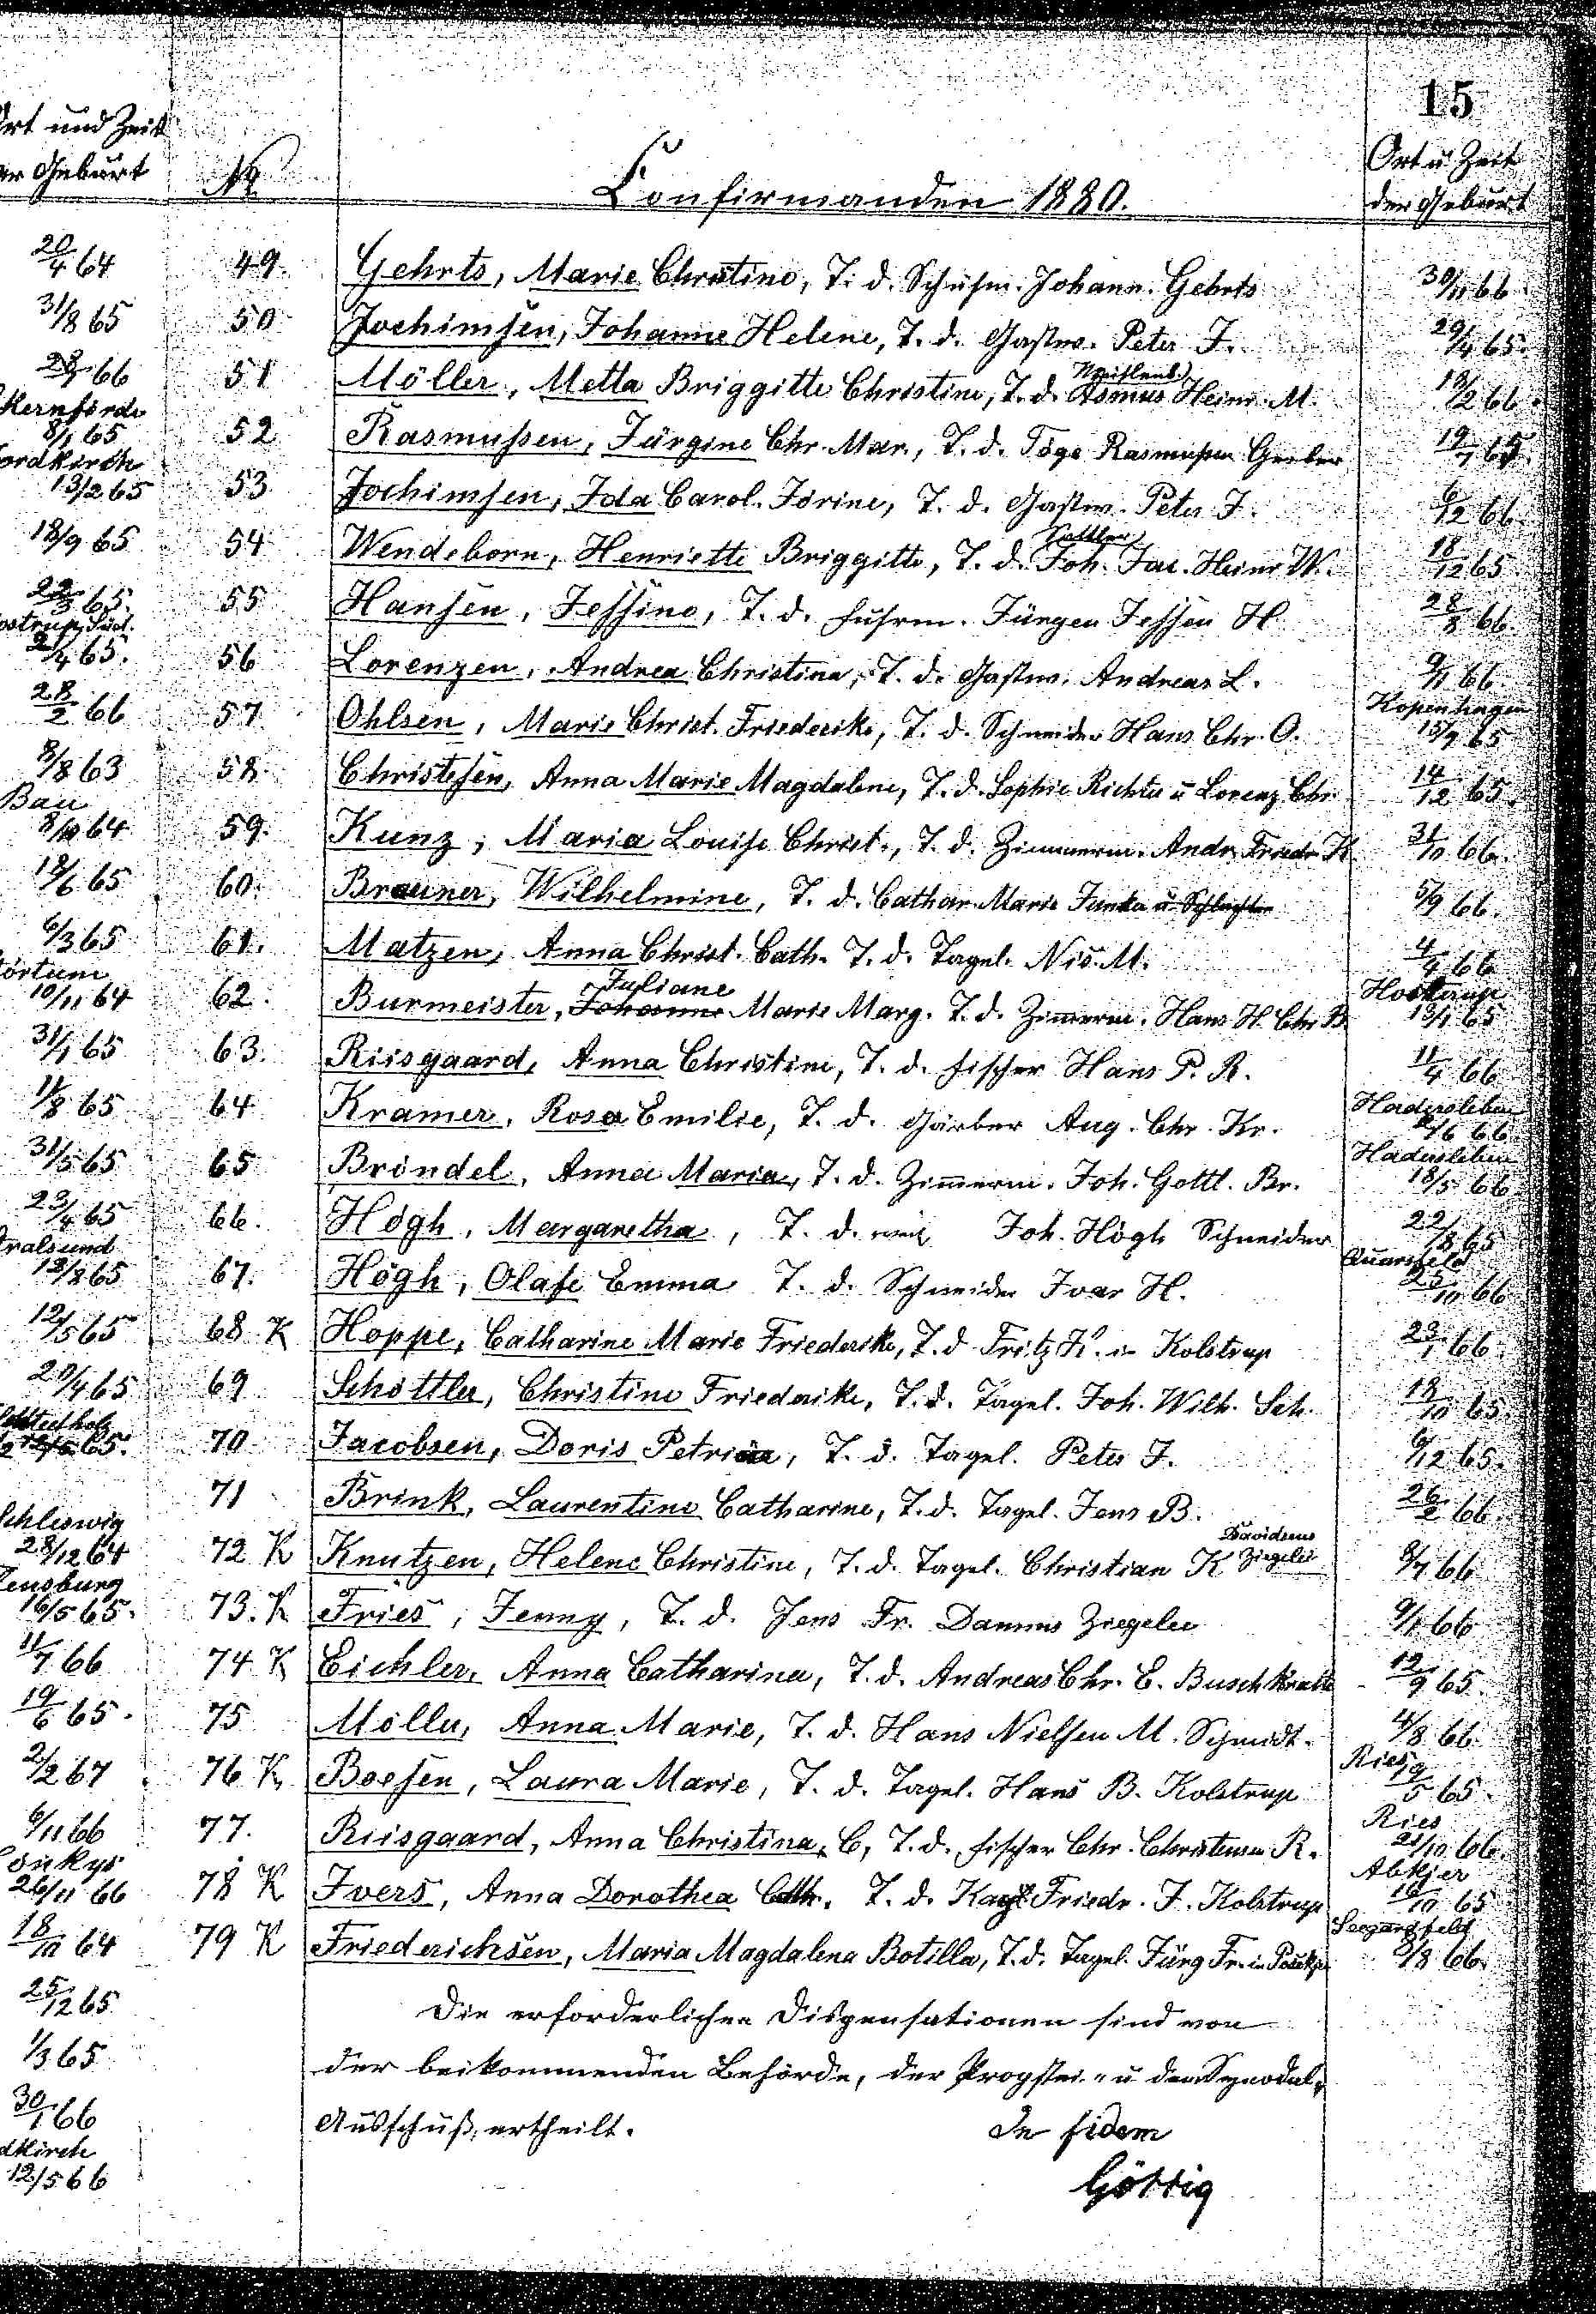 15
Ort und Zeit
der Geburt
№
Confirmanden 1880.
Ort u Zeit
der Geburt
20/4 64
49. Gehrts, Marie Christine, T. d. Johann Gehrts 30/11 66
31/8 65
50 Jochimsen, Johanne Helene, T. d. Gastw. Peter J. 29/4 65.
66
51 Möller, Metta Briggitte Christine, T. d. Asmus Heinr. M. 18/2 66.
kernförde
8/1 65
52 Rasmussen, Jürgine Chr. Mar., T. d. Töge Rasmussen Gerber 19/7 65.
ordkirch
13/2 65
53 Jochimsen, Ida Carol. Jörine, T. d. Gastw. Peter J. 6/12 66.
18/9 65
Sattler
54 Wendeborn, Henriette Briggitte, T. d. Joh. Jac. Heinr W. 18/12 65
22/3 65.
55 Hansen, Jessine, T. d. Fuhrm. Jürgen Jessen H 28/8 66.
ostrup
2/4 65.
56 Lorenzen, Andrea Christina, T. d. Gastw. Andreas L. 9/1 66.
28/2 66
Kopenhagen
57 Ohlsen, Marie Christ. Friederike, T. d. Schneider Hans Chr. O. 15/9 65
8/8 63
58. Christesen, Anna Marie Magdalene, T. d. Sophie Richter u Lorenz Chr. 14/12 65.
Bau
8/10 64
59. Kunz, Maria Louise Christ., T. d. Zimmerm. Andr. Friedr K. 31/10 66.
18/6 65
60. Brauner, Wilhelmine, T. d. Cathar. Marie Junka u 5/9 66.
6/3 65
61. Matzen, Anna Christ. Cath. T. d. Tagel. Nis M. 4/4 66
törtum
10/11 64
Juliane
Hostrup
62. Burmeister, Johanne Marie Marg. T. d. Zimmerm. Hans H. Chr B. 13/1 65
31/1 65
63. Riisgaard, Anna Christine, T. d. Fischer Hans P. R. 11/4 66
11/8 65
Hadersleben
64 Kramer, Rosa Emilie, T. d. Gärber Aug. Chr. Kr. /6 66
31/5 65
Hadersleben
65 Bröndel, Anna Maria, T. d. Zimmerm. Joh. Gottl. Br. 18/5 66
23/4 65
66. Högh, Margaretha, T. d. weil. Joh. Högh Schneider 22/8 65
tralsund
18/8 65
Quarsfeld
67. Högh, Olafe Emma T. d. Schneider Ivar H. 25/10 66
12/5 65
68 K Hoppe, Catharine Marie Friederike, T. d Fritz H. in Kolstrup 23/1 66
20/4 65
69 Schöttler, Christine Friederike, T. d. Tagel. Joh. Wilh. Sch. 18/10 65
65.
70 Jacobsen, Doris Petrina, T. d. Tagel. Peter J. 6/12 65.
71 Brink, Laurentine Catharine, T. d. Tagel. Jens B. 26/2 66
Schleswig
28/12 64
Davidsens
Ziegelei
72 K Knutzen, Helene Christine, T. d. Tagel. Christian K 8/7 66
lensburg
16/5 65.
73. K Fries, Jenny, T. d. Jens Fr. Damms Ziegelei 9/1 66
11/7 66
74 K Eichler, Anna Catharina, T. d. Andreas Chr. E. Buschkrathe 12/9 65
19/6 65.
75 Möller, Anna Marie, T. d. Hans Nielsen M. Schmidt. 4/8 66
2/2 67
Ries
76 K Boesen, Laura Marie, T. d. Tagel. Hans B. Kolstrup 9/5 65.
6/11 66
Ries
77. Riisgaard, Anna Christina, C, T. d. Fischer Chr. Christensen R. 21/10 66.
26/11 66
Abkjer
78 K Ivers, Anna Dorothea Cath. T. d. Friedr. J. Kolstrup 16/10 65
18/10 64
Seegardfeld
79 K Friederichsen, Maria Magdalena Botilla, T. d. Tagel. Jürg Fr. in /8 66.
25/12 65
Die erforderlichen Dispensationen sind von
1/3 65
der beikommenden Behörde, der Propstei- u dem Synodal-
30/1 66
Ausschuß, ertheilt.
In fidem
dkirch
12/5 66
Göttig